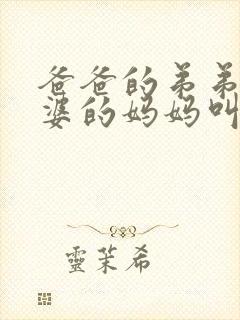 爸爸的弟弟
婆的妈妈叫
靈茉希